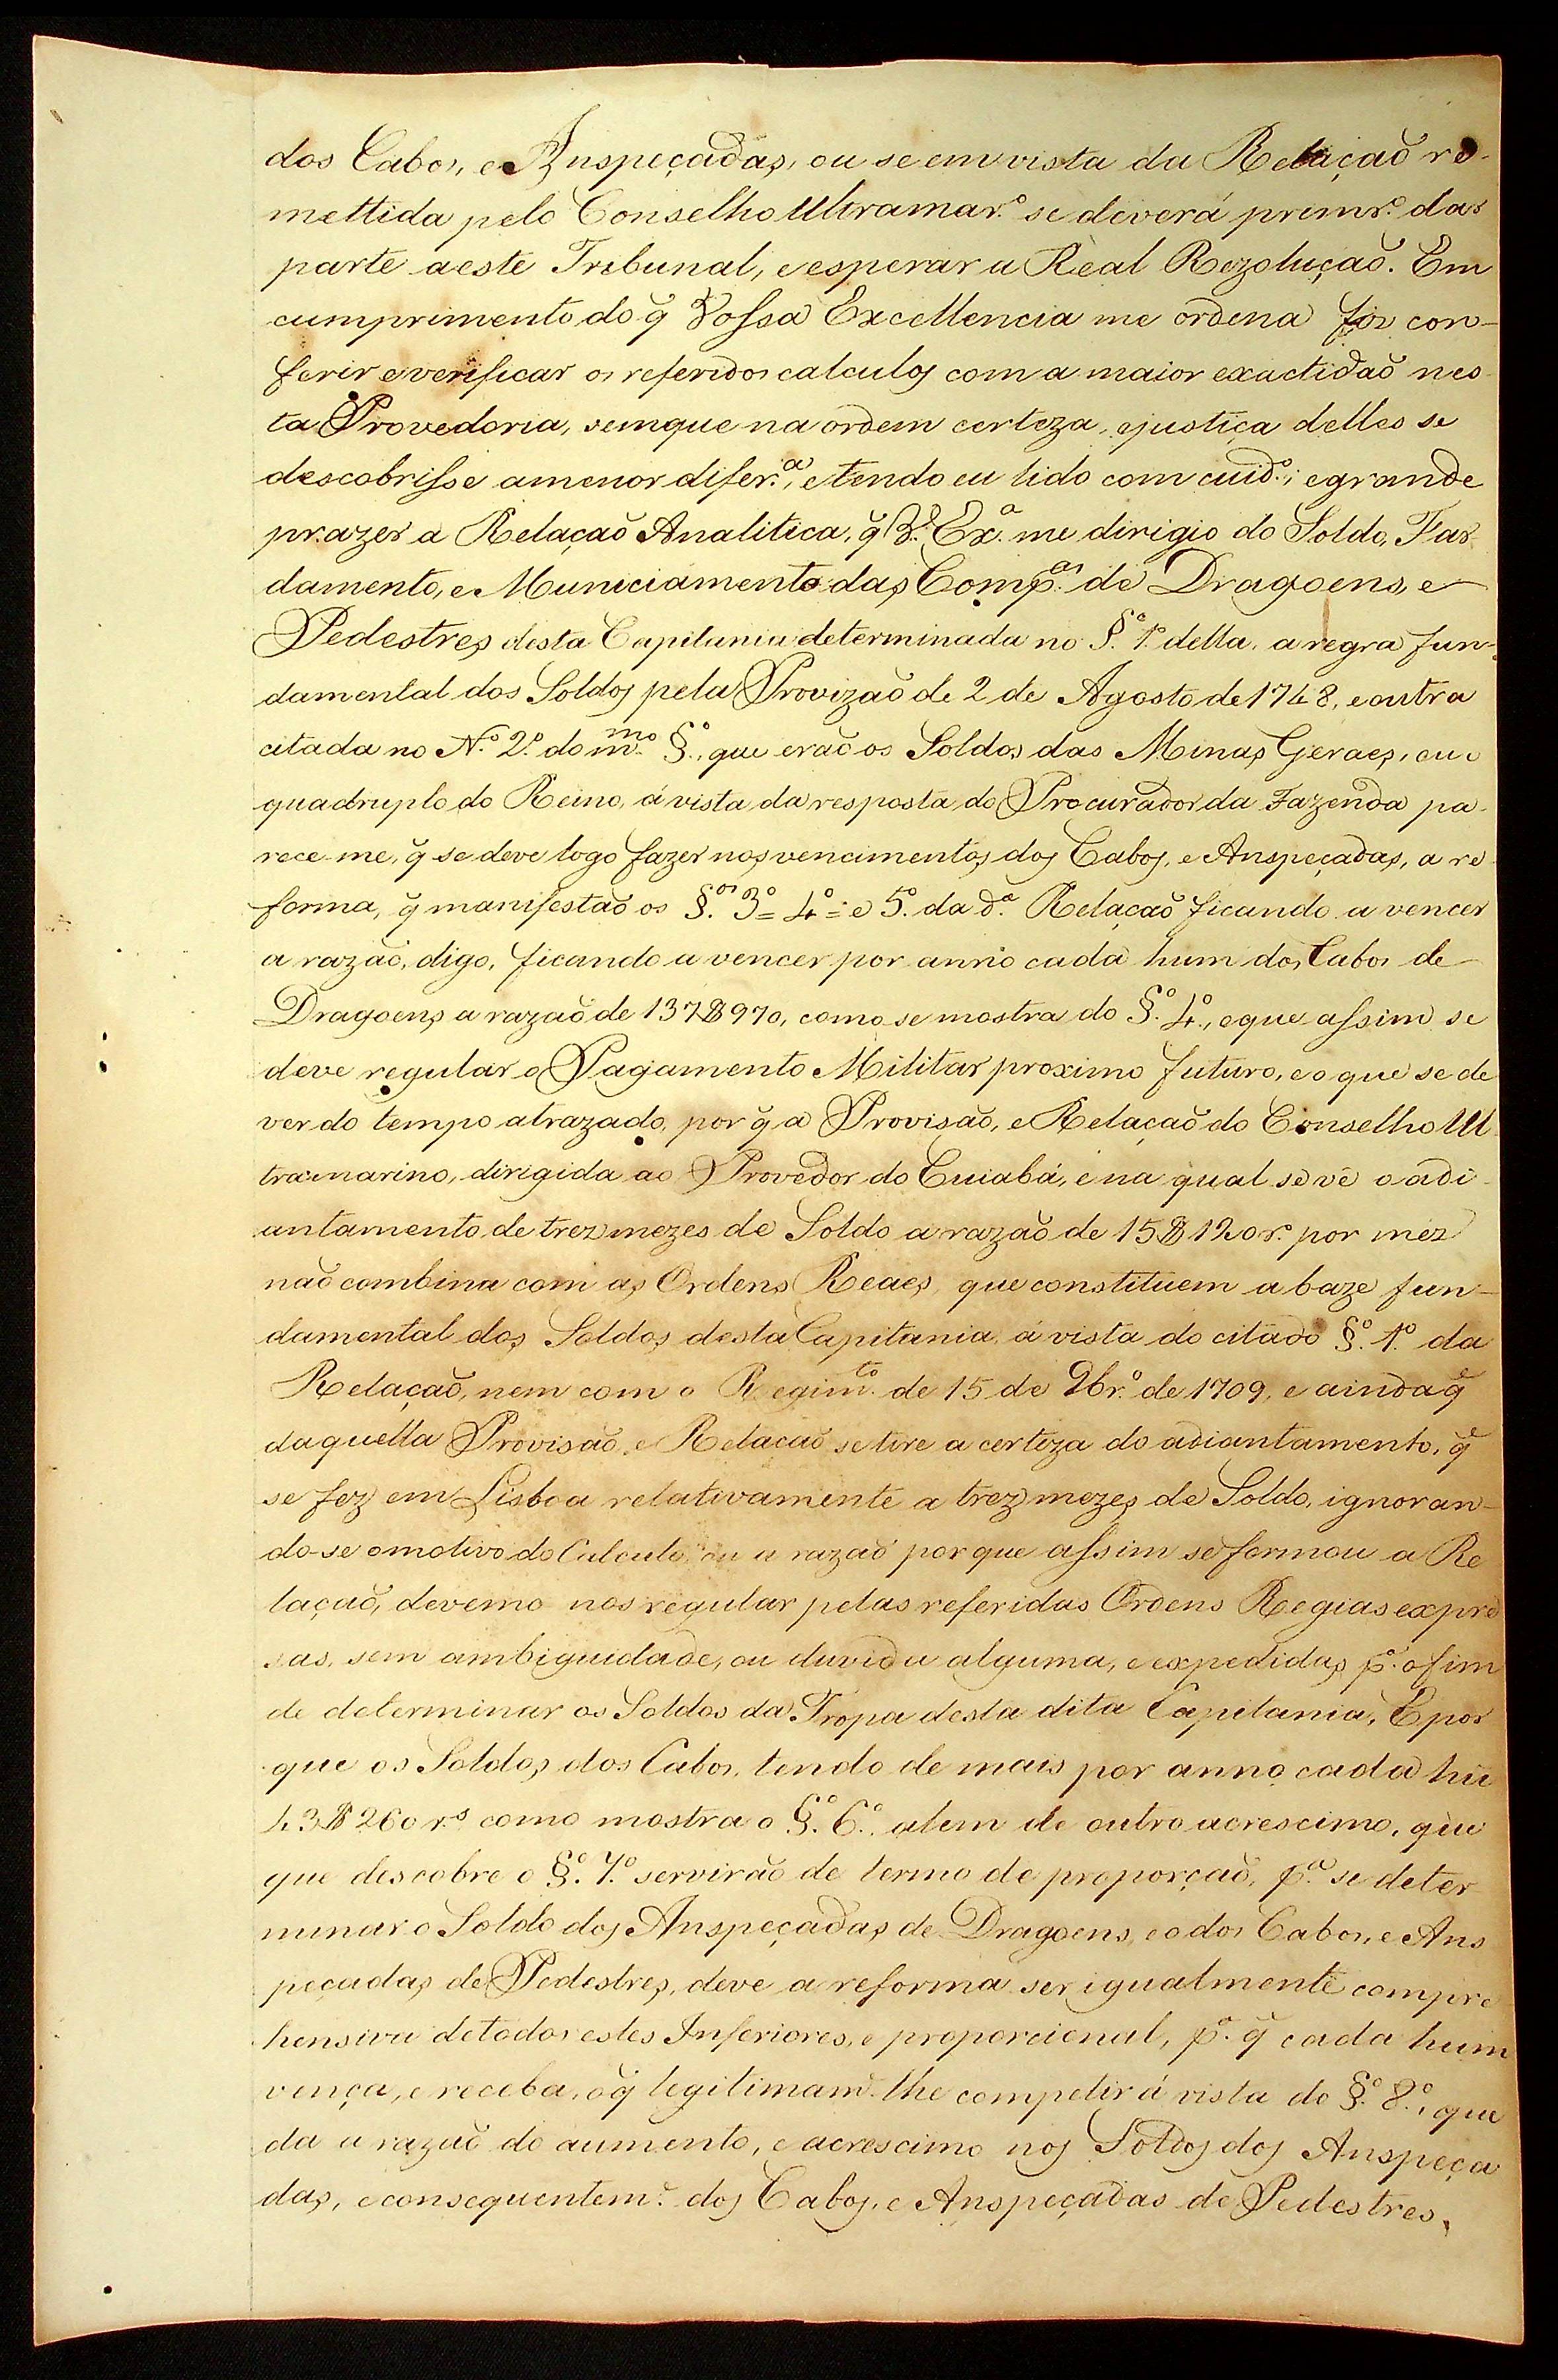 dos Cabos, e Anspeçadas, ou se em vista da Relaçaõ re-
mettida pelo Conselho Ultramar.º se deverá primr.º dar
parte a este Tribunal, e esperar a Real Rezoluçaõ. Em
cumprimento do q̃ Vossa Excellencia me ordena fiz con-
ferir e verificar os referidos calculos com a maior exactidaõ nes-
ta Provedoria, sem que na ordem certeza, e justiça delles se
descobrisse a menor difer.ª, e tendo eu lido com cuid.º, e grande
prazer a Relaçaõ Analitica, q̃ V. Ex.ª me dirigio do Soldo, Far-
damento, e Municiamento das Comp.as de Dragoens, e
Pedestres desta Capitania determinada no §.º 1.º della, a regra fun-
damental dos Soldos pela Provizaõ de 2 de Agosto de 1748, e outra
citada no N.º 2.º do m.mo §.º, que eraõ os Soldos das Minas Geraes, ou o
quadruplo do Reino, á vista da resposta do Procurador da Fazenda pa-
rece-me, q̃ se deve logo fazer nos vencimentos dos Cabos, e Anspeçadas, a re-
forma, q̃ manifestaõ os §.os 3.º = 4.º = e 5.º da d.ª Relaçaõ ficando a vencer
a razaõ, digo, ficando a vencer por anno cada hum dos Cabos de
Dragoens a razaõ de 137$970, como se mostra do §.º 4.º, e que assim se
deve regular o Pagamento Militar proximo futuro, e o que se de
ver do tempo atrazado, por q̃ a Provisaõ, e Relaçaõ do Conselho Ul-
tramarino, dirigida ao Provedor do Cuiabá, e na qual se vê o adi-
antamento de trez mezes de Soldo a razaõ de 15$120 r.s por mez
naõ combina com as Ordens Reaes, que constituem a baze fun-
damental dos Soldos desta Capitania, á vista do citado §.º 1.º da
Relaçaõ, nem com o Regim.to de 15 de 9br.º de 1709, e ainda q̃
daquella Provisaõ, e Relaçaõ se tire a certeza do adiantamento, q̃
se fez em Lisboa relativamente a trez mezes de Soldo, ignoran-
do-se o motivo do Calculo, ou a razaõ por que assim se formou a Re
laçaõ, devemo nos regular pelas referidas Ordens Regias expre
sas, sem ambiguidade, ou duvida alguma, e expedidas p.ª o fim
de determinar os Soldos da Tropa desta dita Capitania, E por
que os Soldos dos Cabos, tendo de mais por anno cada hũ
43$260 r.s como mostra o §.º 6.º, alem de outro acrescimo, que
que descobre o §.º 7.º serviraõ de termo de proporçaõ, p.ª se deter-
minar o Soldo dos Anspeçadas de Dragoens, e o dos Cabos, e Ans
peçadas de Pedestres, deve a reforma ser igualmente compre
hensiva de todos estes Inferiores, e proporcional, p.ª q̃ cada hum
vença, e receba, o q̃ legitimam.e lhe competir á vista do §.º 8.º, que
da a razaõ do aumento, e acrescimo nos Soldos dos Anspeça
das, e consequentem.e dos Cabos, e Anspeçadas de Pedestres,